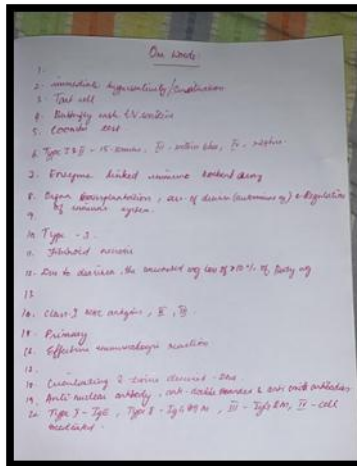 One words
1.
2. immediate hypersensitivity/
3. Tart cell
4. Butterfly rash
5. Coombs test
6. Type I & II - 15-30mins, III, within 6hrs, IV,
7. Enzyme linked immuno sorbent assay
8. Organ transplantation, of disease (autoimmune) Regulation
of immune system.
9.
10. Type - 3.
11. Fibrinoid necrosis
12. Due to disease, the unwanted wg loss of >10% of Body wg
13.
14. Class-I antigens, II, III
15. Primary
16. Effective reaction
17.
18. Circulating &
19. Anti nuclear antibody, anti-double stranded & anti smith antibodies
20. Type I - IgE, Type II - IgG & M, III - IgG & M, IV - cell
mediated.